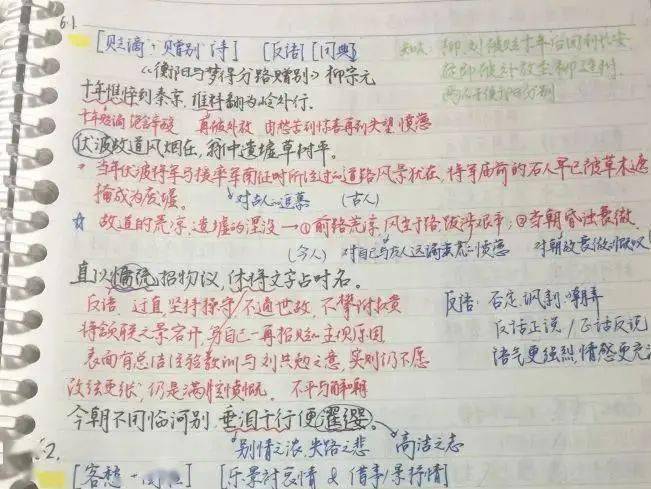 61.
[贬谪·赠别诗] [反语] [用典]
《衡阳与梦得分路赠别》柳宗元
柳、刘被贬十年后回到长安
两人于衡阳分别
十年憔悴到秦京，谁料翻为岭外行。
十年贬谪 饱含辛酸 再被外放 由愁苦到惊喜再到失望愤懑
伏波故道风烟在，翁仲遗墟草树平。
当年伏波将军马援率军南征时所经过的道路风景犹在，将军庙前的石人早已被草木遮
掩成为废墟。 对古人的追慕 (古人)
☆ 故道的荒凉，遗墟的湮没→①前路荒凉，风尘于路 跋涉艰辛；②当朝昏蚀衰微
(今人) 对自己与友人远谪蛮荒的愤懑 对朝政衰微的慨叹
直以慵疏招物议，休将文字占时名。
反语 过直，坚持操守/不通世故，不攀附权贵
将颔联之景宕开，写自己一再招贬的主观原因
表面有总结经验教训与刘共勉之意，实则仍不愿
改弦更张，仍是满腔愤慨。 不平与解嘲
反语：否定、讽刺、嘲弄
反话正说/正话反说
语气更强烈，情感更充
今朝不用临河别，垂泪千行便濯缨。
别情之浓，失路之悲 高洁之志
62.
[客愁·] [乐景衬哀情 & 借事/景抒情]